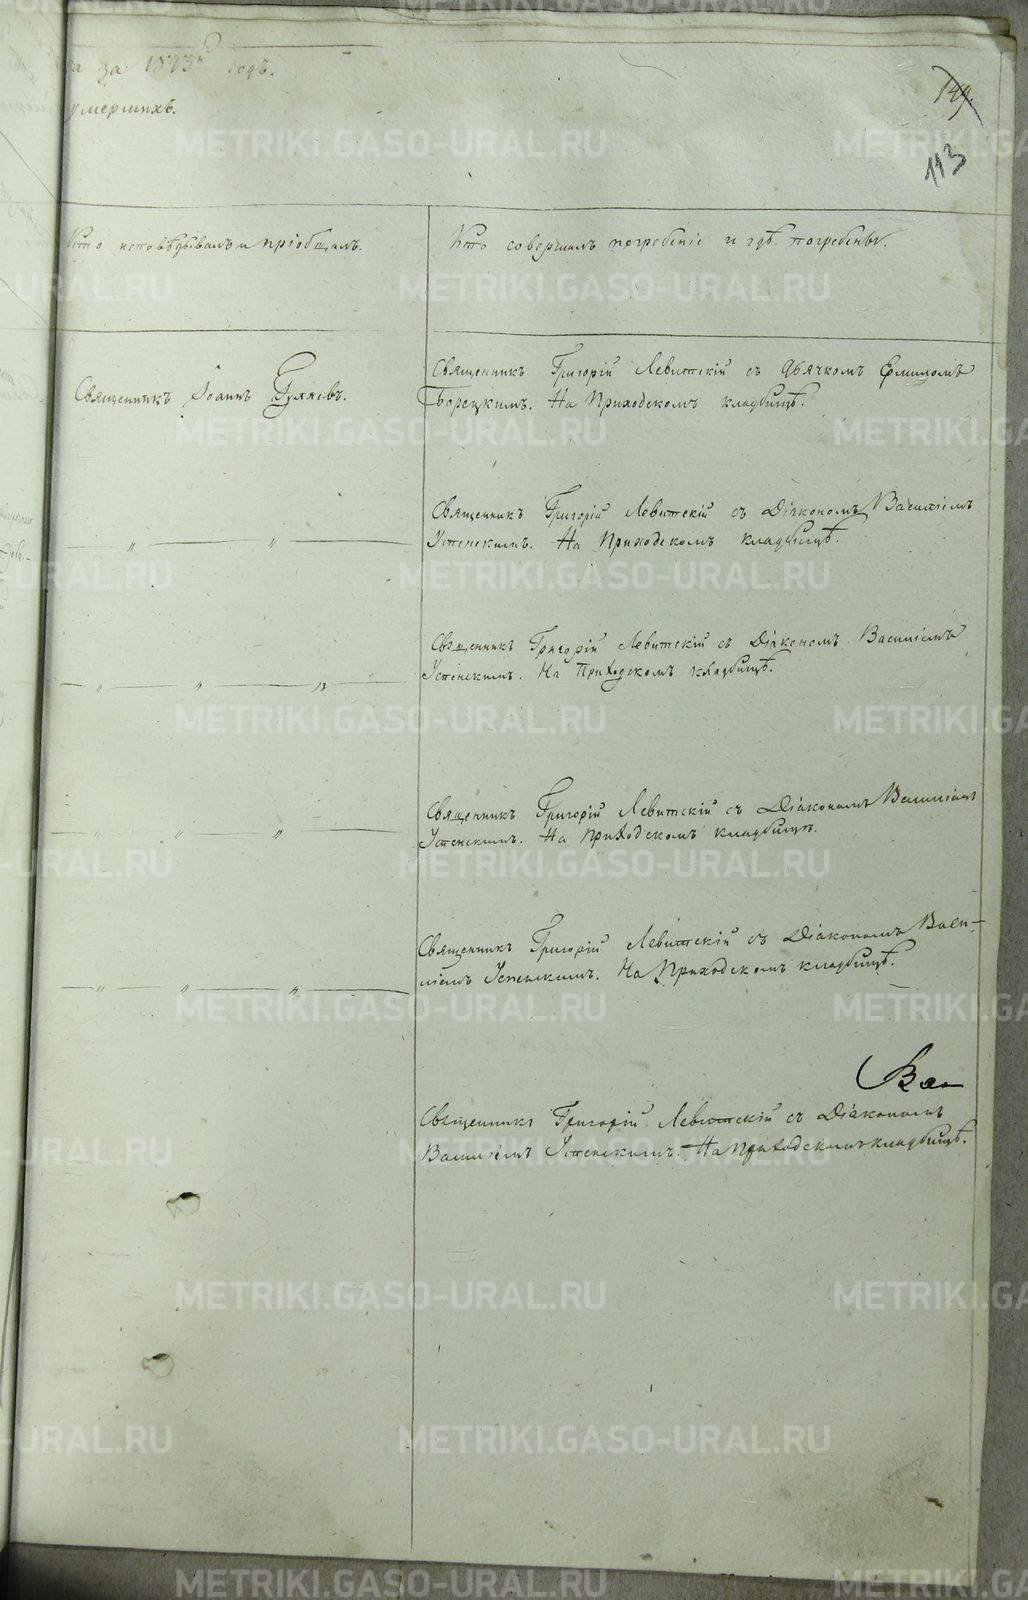 за 1843й годъ.
умершихъ.
149.
113
Кто исповѣдывалъ и пріобщалъ.
Кто совершалъ погребеніе и гдѣ погребены.
Священникъ Іоаннъ Гуляевъ.
Священникъ Григорій Левитскій съ дьячкомъ
Борецкимъ. На Приходскомъ кладбищѣ.
Священникъ Григорій Левитскій съ Діакономъ Василіемъ
Успенскимъ. На Приходскомъ кладбищѣ.
" "
Священникъ Григорій Левитскій съ Діакономъ Василіемъ
Успенскимъ. На Приходскомъ кладбищѣ.
" " "
Священникъ Григорій Левитскій съ Діакономъ Василіемъ
Успенскимъ. На Приходскомъ кладбищѣ.
" " "
Священникъ Григорій Левитскій съ Діакономъ Васи-
ліемъ Успенскимъ. На Приходскомъ кладбищѣ.
" " "
Священникъ Григорій Левитскій съ Діакономъ
Василіемъ Успенскимъ. На Приходскомъ кладбищѣ.
METRIKI.GASO-URAL.RU